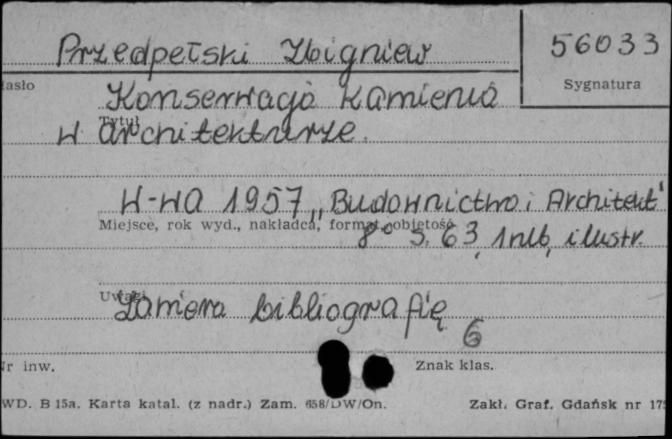 Przedpełski Zbigniew
56033
Hasło
Sygnatura
Konserwacja Kamienia
Tytuł
w architekturze.
W-wa 1957 „Budownictwo i Architekt"
Miejsce, rok wyd., nakładca, format, objętość
8° s. 63, 1 nlb, ilustr.
Uwagi
Zawiera bibliografię
6
Nr inw.
Znak klas.
WD. B 15a. Karta katal. (z nadr.) Zam. 658/DW/On.
Zakł. Graf. Gdańsk nr 175